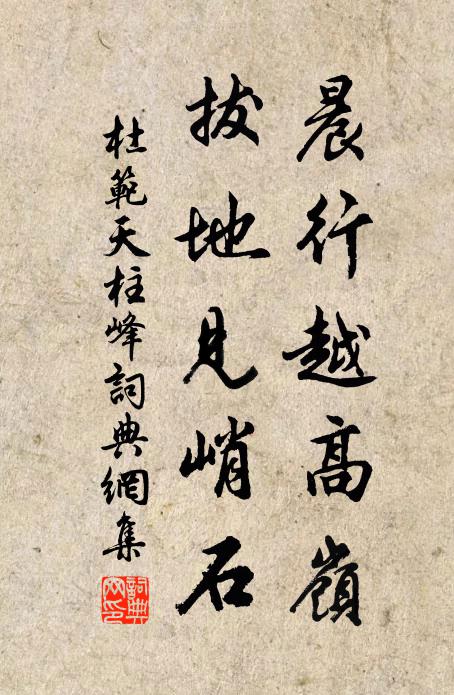 晨行越高嶺
拔地見峭石
杜範天柱峰詞典網集
詞典
网印